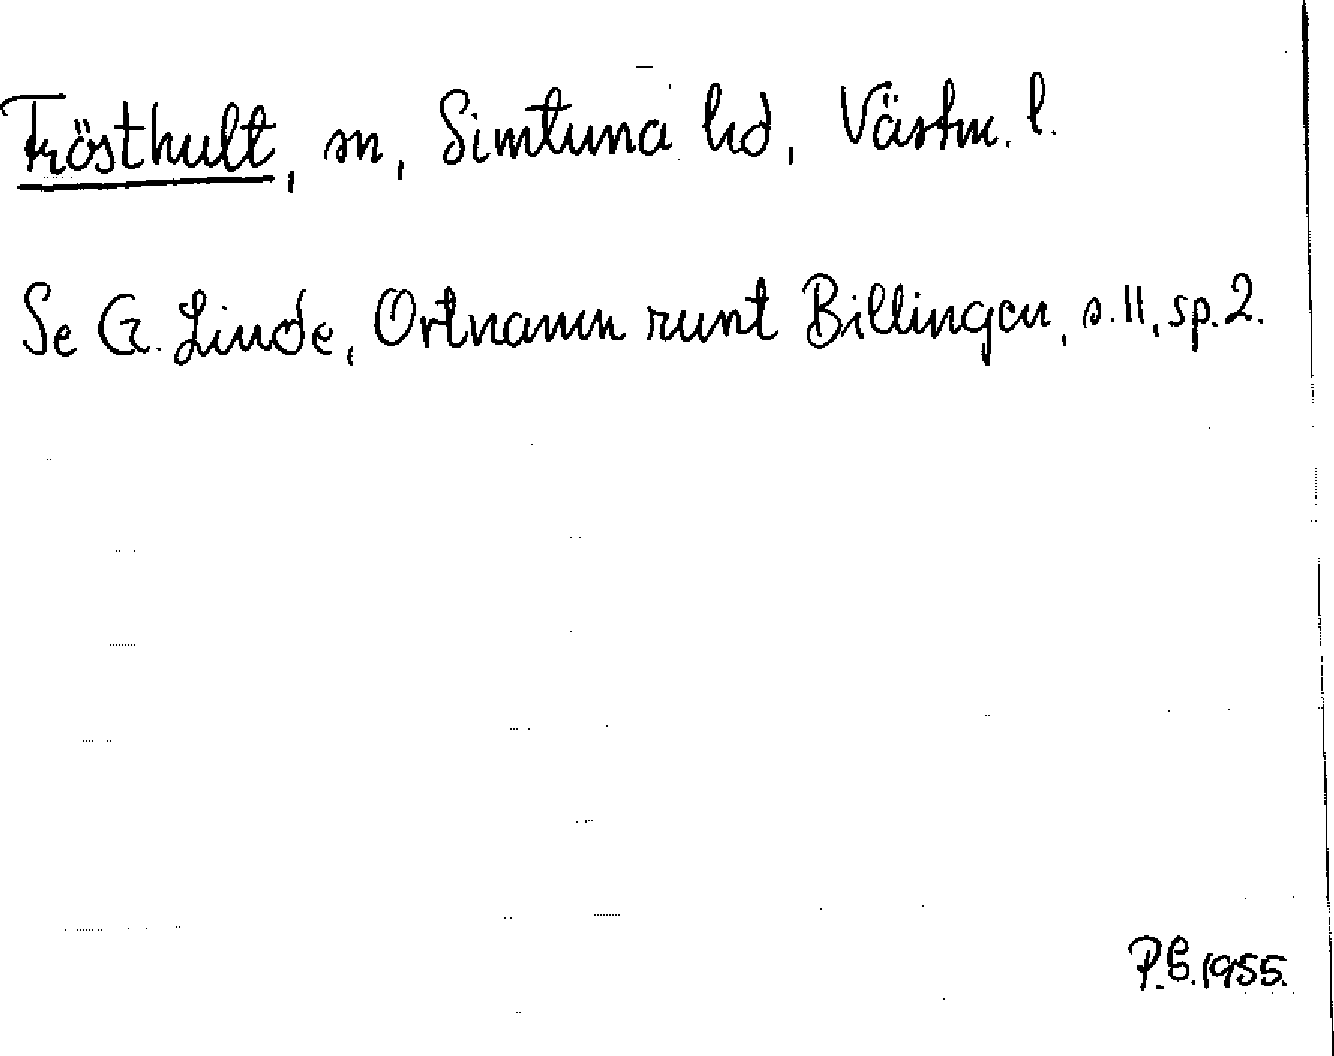 Frösthult, sn, Simtuna hd, Västm. l.
Se G. Linde, Ortnamn runt Billingen, s. 11, sp. 2.
P.E. 1955.